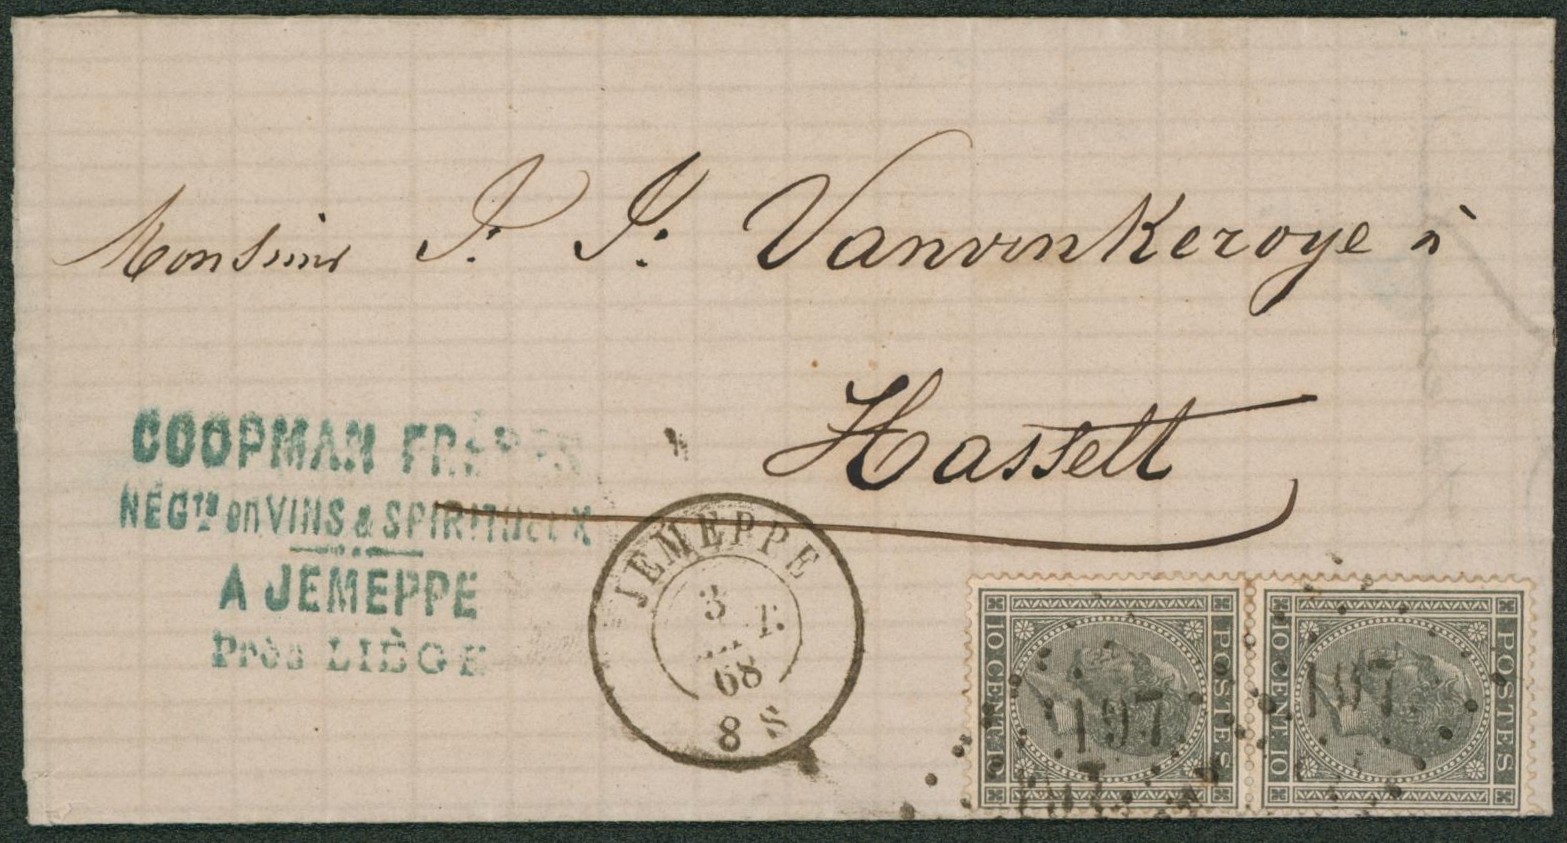 Monsieur J. J. Vanvinkeroye à
Hasselt
COOPMAN FRÈRES
NÉGts en VINS & SPIRITUEUX
A JEMEPPE
Près LIÈGE
JEMEPPE
3
68
8 S
POSTES
10 CENT 10
197
POSTES
10 CENT 10
197